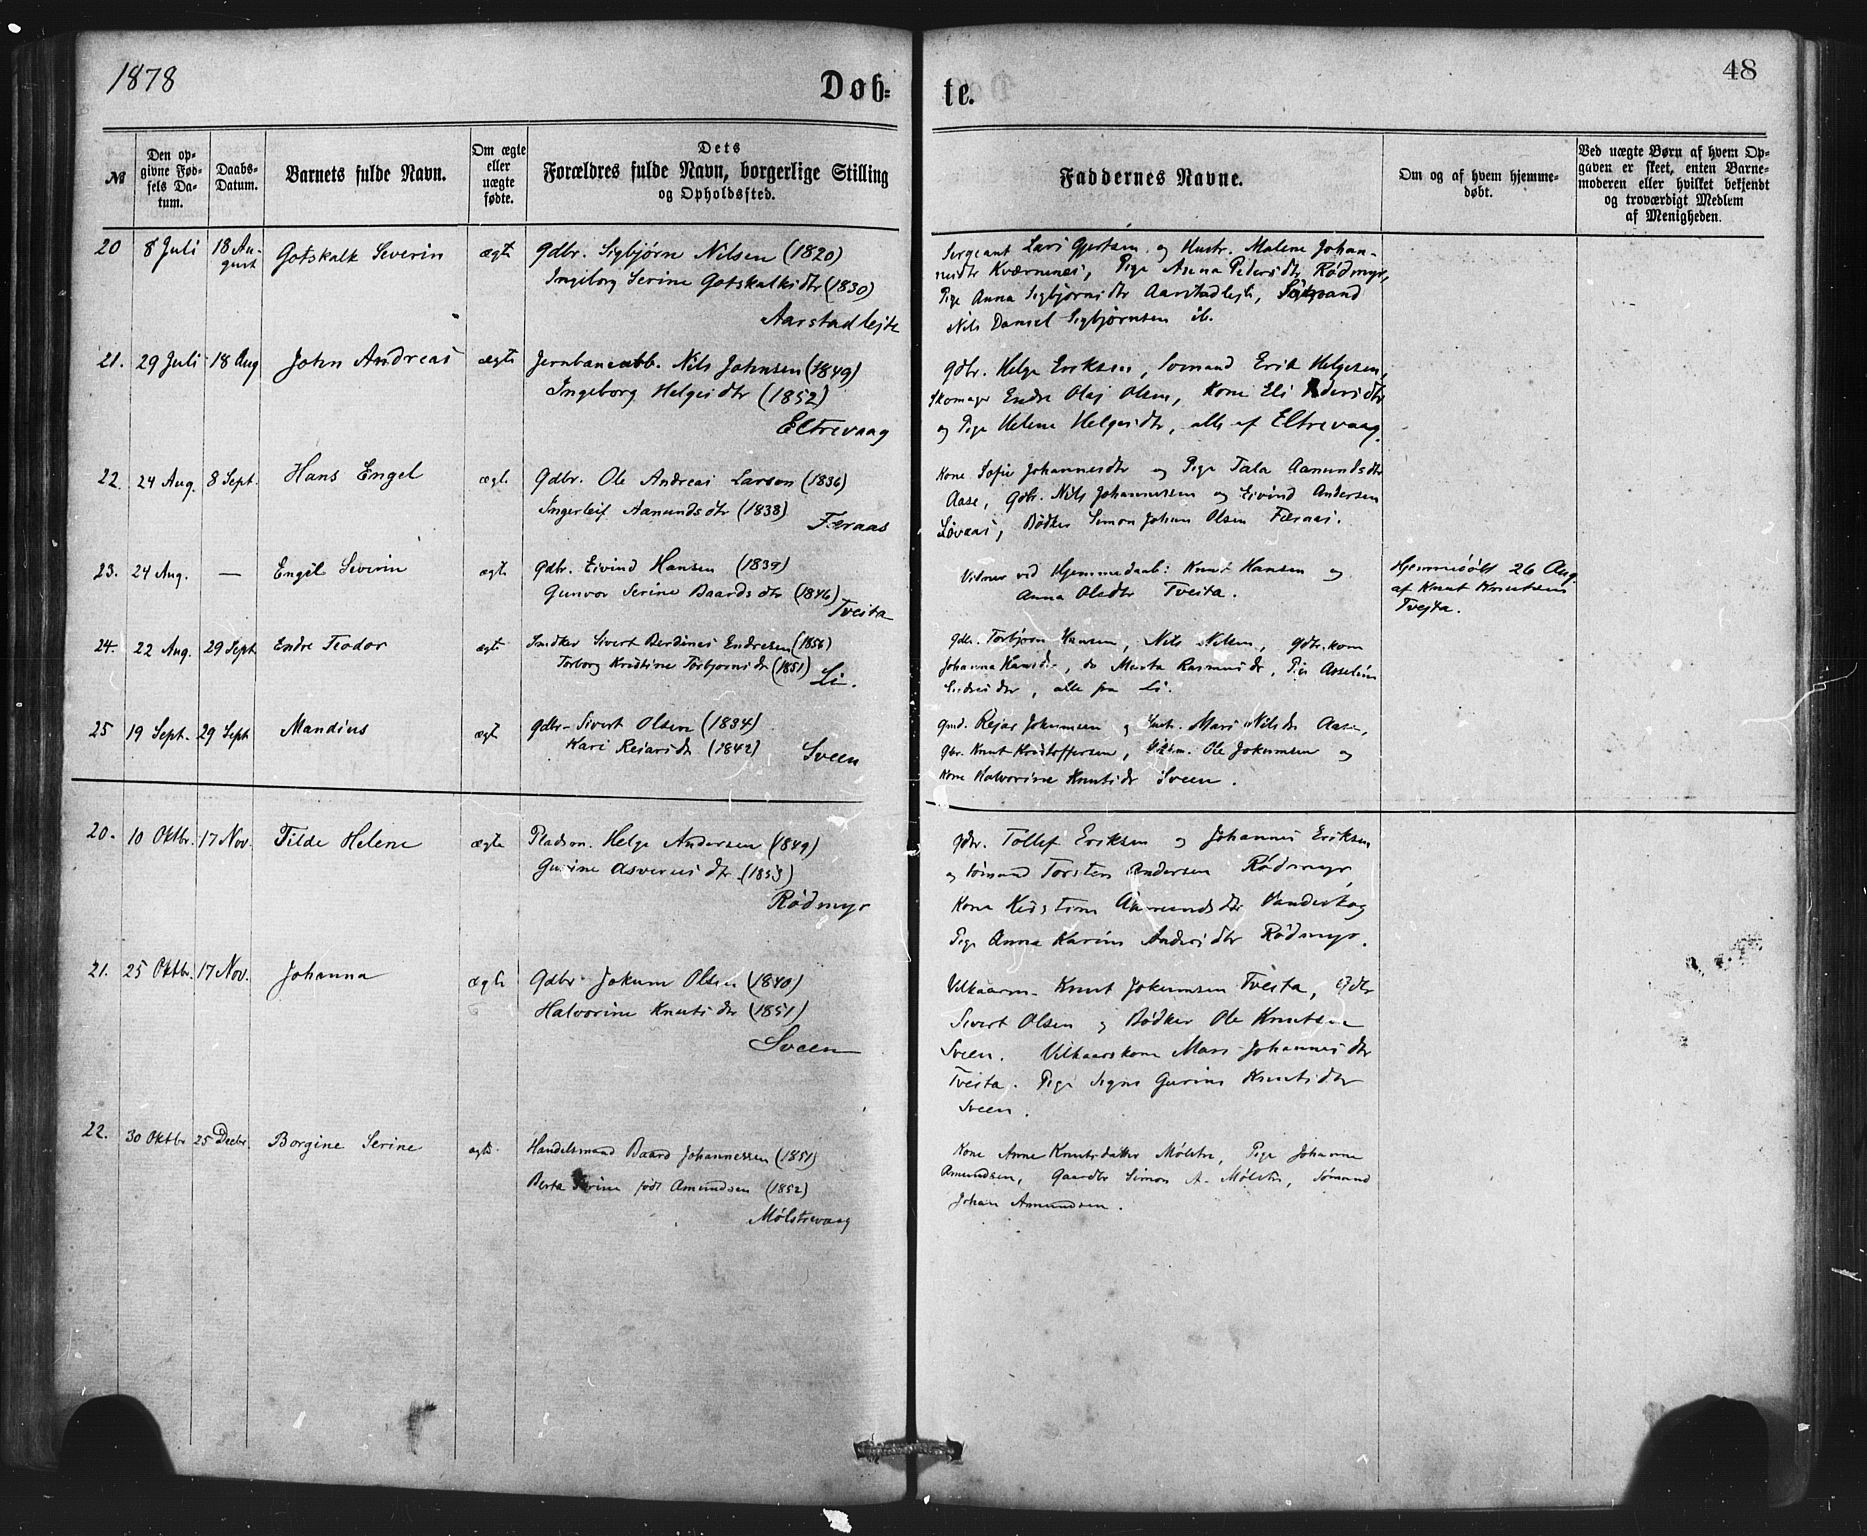 1878
Dob=
te.
48
№
Den op=
givne Fød=
sels Da=
tum.
Daabs=
Datum.
Barnets fulde Navn.
Om ægte
eller
uægte
fødte.
Dets
Forældres fulde Navn, borgerlige Stilling
og Opholdssted.
Faddernes Navne.
Om og af hvem hjemme=
døbt.
Ved uægte Børn af hvem Op=
gaven er skeet, enten Barne=
moderen eller hvilket bekjendt
og troværdigt Medlem
af Menigheden.
20 8 Juli 18 Au-
gust
Gotskalk Severin
ægte
Gdbr. Sigbjørn Nilsen (1820)
Ingeborg Serine Gotskalksdtr (1830)
Aarstadlejte
Sergeant Lars Gjertsen og Hustr. Malene Johan-
nesdtr Kværnenes, Pige Anna Pedersdtr Rødmyr,
Pige Anna Sigbjørnsdtr Aarstadlejte, Sømand
Nils Daniel Sigbjørnsen ib.
21. 29 Juli 18 Aug
John Andreas
ægte
Jernbanearb. Nils Johnsen (1849)
Ingeborg Helgesdtr (1852)
Eltrevaag
Gdbr. Helge Eriksen, Sømand Erik Helgesen,
Skomager Endre Olaj Olsen, Kone Eli
og Pige Helene Helgesdtr, alle af Eltrevaag.
22. 24 Aug. 8 Sept.
Hans Engel
ægte
Gdbr. Ole Andreas Larson (1836)
Ingerleif Aamundsdtr (1838)
Færaas
Kone Sofie Johannesdtr og Pige Tala Aamundsdtr
Aase, Gdbr. Nils Johannessen og Eivind Andersen
Løvaas, Bødker Simon Johan Olsen Færaas.
23. 24 Aug. —
Engel Severin
ægte
Gdbr. Eivind Hansen (1839)
Gunvor Serine Baardsdtr (1846)
Tveita
Vitner ved Hjemmedaab: Knut Hansen og
Anna Olsdtr Tveita.
Hjemmedøbt 26 Aug.
af Knut Knutsen
Tvejta.
24. 22 Aug. 29 Sept
Endre Teodor
ægte
Snedker Sivert Berdines Endresen (1856)
Torborg Kristine Torbjørnsdtr (1851)
Li.
Gdbr. Torbjørn Hansen, Nils Nilsen, Gdbr.kone
Johanna Hansdtr, do Marta Rasmusdtr, Pige Asseline
Endresdtr, alle fra Li.
25 19 Sept. 29 Sept
Mandius
ægt
Gdbr. Sivert Olsen (1834)
Kari Reiarsdtr (1842)
Sveen
Gmd. Rejar Jokumsen og Hustr. Mari Nilsdtr Aase,
Gbr. Knut Kristoffersen, Ole Jokumsen og
Kone Halvorine Knutsdtr Sveen.
20. 10 Oktbr. 17 Nov.
Tilde Helene
ægte
Pladsm. Helge Andersen (1849)
Gurine Asverusdtr (1853)
Rødmyr
Gdbr. Tollef Eriksen og Johannes Eriksen
og Sømand Torsten Andersen Rødmyr,
Kone Kirstine Aamundsdtr Vandeskog
Pige Anna Karine Andersdtr Rødmyr.
21. 25 Oktbr. 17 Nov.
Johanna
ægte
Gdbr. Jokum Olsen (1840)
Halvorine Knutsdtr (1851)
Sveen
Vilkaarm. Knut Jokumsen Tveita, Gdbr
Sivert Olsen og Bødker Ole Knutsen
Sveen. Vilkaarskone Mari Johannesdtr
Tveita. Pige Signe Gurine Knutsdtr
Sveen.
22. 30 Oktbr 25 Decbr.
Borgine Serine
ægte
Handelsmand Baard Johannessen (1851)
Berta Serine født Amundsen (1852)
Mølstrevaag
Kone Anne Knutsdatter Mølstre, Pige Johanne
Amundsen, Gaardbr Simon A. Mølstre, Sømand
Johan Amundsen.